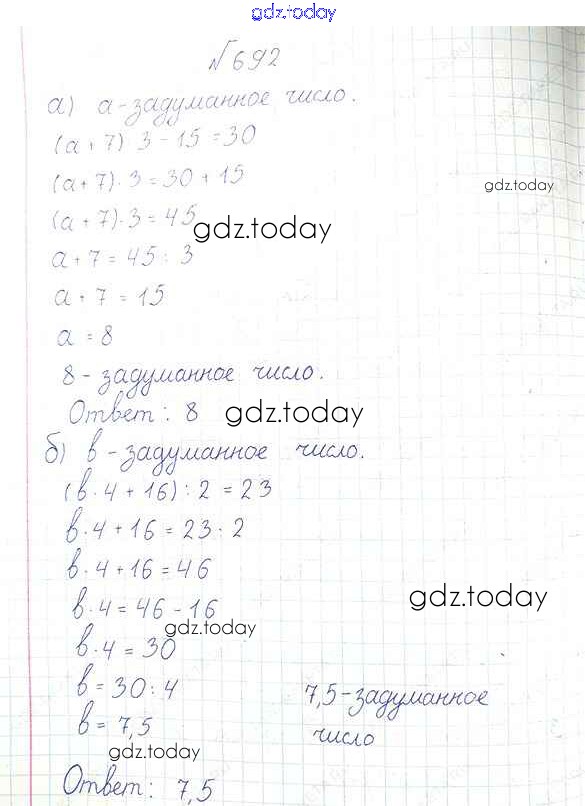 gdz.today
№ 692
а) а-задуманное число.
(а+7) 3-15=30
(а+7)·3=30+15
gdz.today
(а+7)·3=45
gdz.today
а+7=45:3
а+7=15
а=8
8-задуманное число.
Ответ: 8
gdz.today
б) в-задуманное число.
(в·4+16):2=23
в·4+16=23·2
в·4+16=46
gdz.today
в·4=46-16
gdz.today
в·4=30
в=30:4
7,5-задуманное
в=7,5
число
gdz.today
Ответ: 7,5